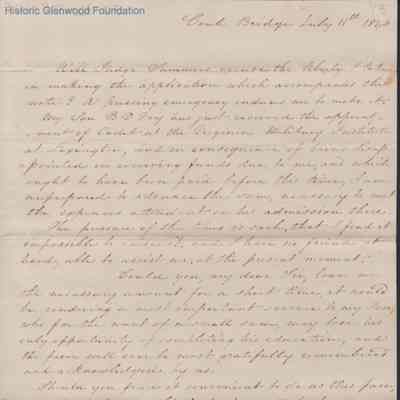 Historic Glenwood Foundation
Coal Bridge July 11th 184
Will Judge Summers excuse the liberty I take
in making the application which accompanies this
note? A pressing emergency induces me to make it.
My Son B D Fry has just received the appoint-
ment of Cadet at the Virginia Military Institute
at Lexington, and in consequence of being disap-
pointed in receiving funds due to me, and which
ought to have been paid before this time, I am
unprepared to advance the sum, necessary to meet
the expenses attendant on his admission there.
The pressure of the times is such, that I find it
impossible to raise it, and I have no friend at
hand, able to assist me, at the present moment.
Could you, my dear Sir, loan me
the necessary amount for a short time, it would
be rendering a most important service to my Son,
who for the want of a small sum, may lose his
only opportunity of completing his education, and
the favor will ever be most gratefully remembered
and acknowledged by us.
Should you find it convenient to do us this favor,